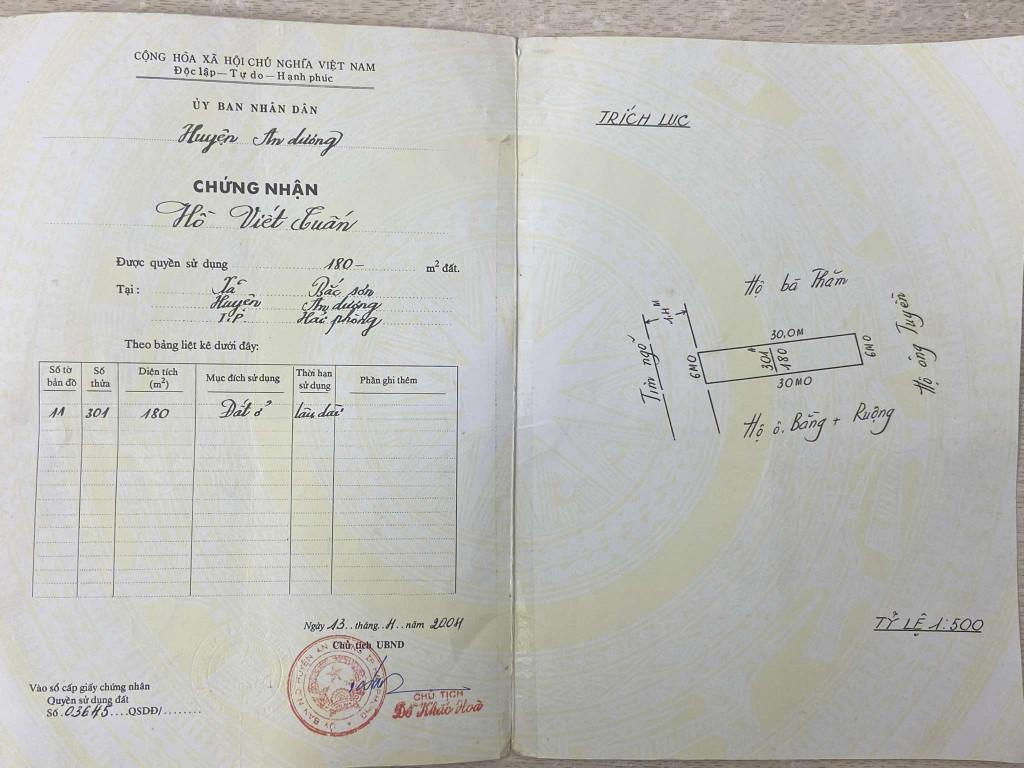 CỘNG HÒA XÃ HỘI CHỦ NGHĨA VIỆT NAM
Độc lập — Tự do — Hạnh phúc
ỦY BAN NHÂN DÂN
Huyện An dương
CHỨNG NHẬN
Hồ Viết Tuấn
Được quyền sử dụng 180 — m² đất.
Tại : Xã Bắc sơn
Huyện An dương
T.P. Hải phòng
Theo bảng liệt kê dưới đây:
Số tờ bản đồ Số thửa Diện tích (m²) Mục đích sử dụng Thời hạn sử dụng Phần ghi thêm
11 301 180 Đất ở lâu dài
Ngày 13 tháng 11 năm 2004
Chủ tịch UBND
CHỦ TỊCH
Đỗ Khắc Hoà
Vào sổ cấp giấy chứng nhận
Quyền sử dụng đất
Số 03645 QSDĐ/
TRÍCH LỤC
Hộ bà Thắm
Hộ ông Tuyền
Tim ngõ
30,0M
6M0
301
180
6M0
30M0
Hộ ô. Bằng + Ruộng
TỶ LỆ 1:500